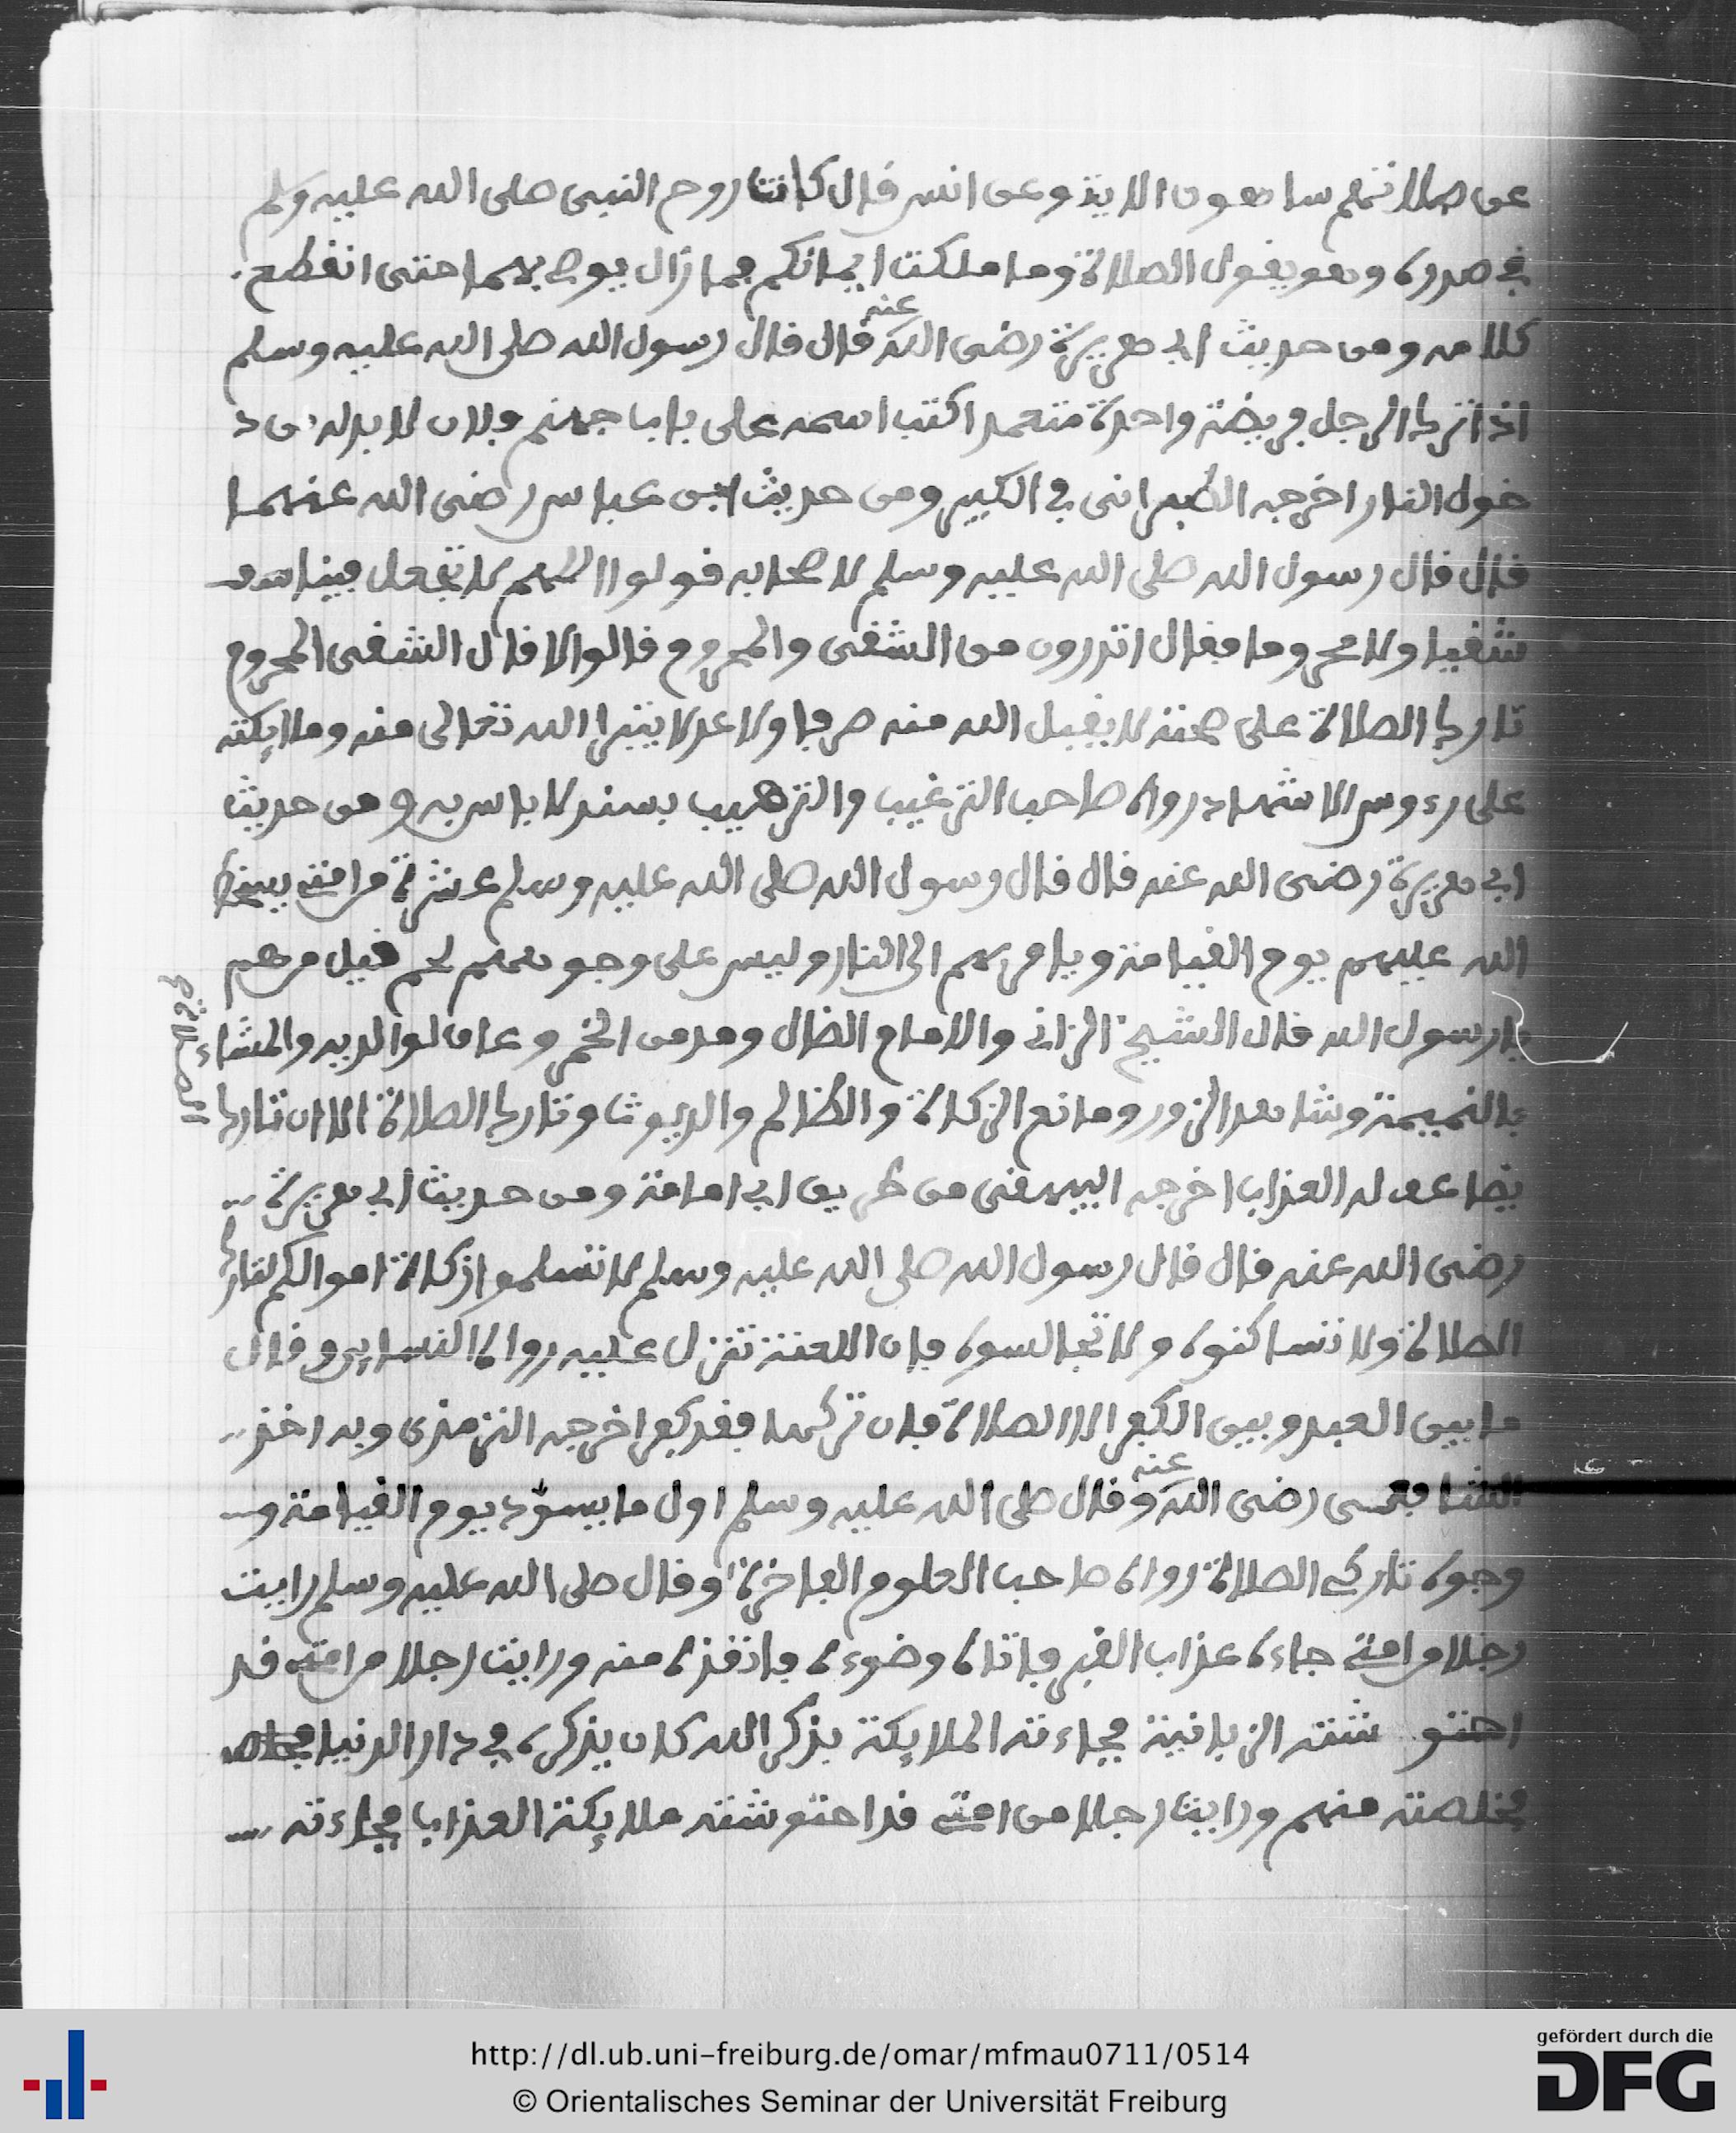 عن صلاتهم ساهون الاية وعن انس قال كانت روح النبي صلى الله عليه وسلم
في صدره وهو يقول الصلاة وما ملكت ايمانكم فما زال يوصي بهما حتى انقطع
كلامه ومن حديث ابي هريرة رضى الله عنه قال قال رسول الله صلى الله عليه وسلم
اذا ترك الرجل فريضة واحدة متعمدا كتب اسمه على باب جهنم وبلان لا بد له من د
خول النار اخرجه الطبراني في الكبير ومن حديث ابن عباس رضى الله عنهما
قال قال رسول الله صلى الله عليه وسلم لاصحابه قولوا اللهم لا تجعل فينا
شقيا ولا محروما فقال اتدرون من الشقى والمحروم قالوا لا قال الشقى المحروم
تارك الصلاة على صحته لا يقبل الله منه صرفا ولا عدلا يتبرا الله تعالى منه وملايكته
على رءوس الاشهاد رواه صاحب الترغيب والترهيب بسند لا باس به ومن حديث
ابي هريرة رضى الله عنه قال قال رسول الله صلى الله عليه وسلم عشرة من امتى يسخط
الله عليهم يوم القيامة ويامر بهم الى النار وليس على وجوههم لحم قيل من هم
يا رسول الله قال الشيخ الزاني والامام الضال ومدمن الخمر وعاق لوالديه والمشاء
بالنميمة وشاهد الزور ومانع الزكاة والظالم والديوث وتارك الصلاة الا ان تارك
الصلاة
يضاعف له العذاب اخرجه البيهقى من طريق ابي امامة ومن حديث ابي هريرة
رضى الله عنه قال قال رسول الله صلى الله عليه وسلم لا تسلموا زكاة اموالكم لتارك
الصلاة ولا تساكنوه ولا تجالسوه فان اللعنة تنزل عليه رواه النسايى وقال
ما بين العبد وبين الكفر الا الصلاة فان تركها فقد كفر اخرجه الترمذى وبه اخذ
الشافعى رضى الله عنه وقال صلى الله عليه وسلم اول ما يسود يوم القيامة و
وجوه تاركي الصلاة رواه صاحب العلوم الفاخرة وقال صلى الله عليه وسلم رايت
رجلا من امتى جاءه عذاب القبر فاتاه وضوءه فانقذه منه ورايت رجلا من امتى قد
احتوشته الزبانية فجاءته الملايكة بذكر الله كان يذكره في دار الدنيا
فخلصته منهم ورايت رجلا من امتى قد احتوشته ملايكة العذاب فجاءته
http://dl.ub.uni-freiburg.de/omar/mfmau0711/0514
© Orientalisches Seminar der Universität Freiburg
gefördert durch die
DFG